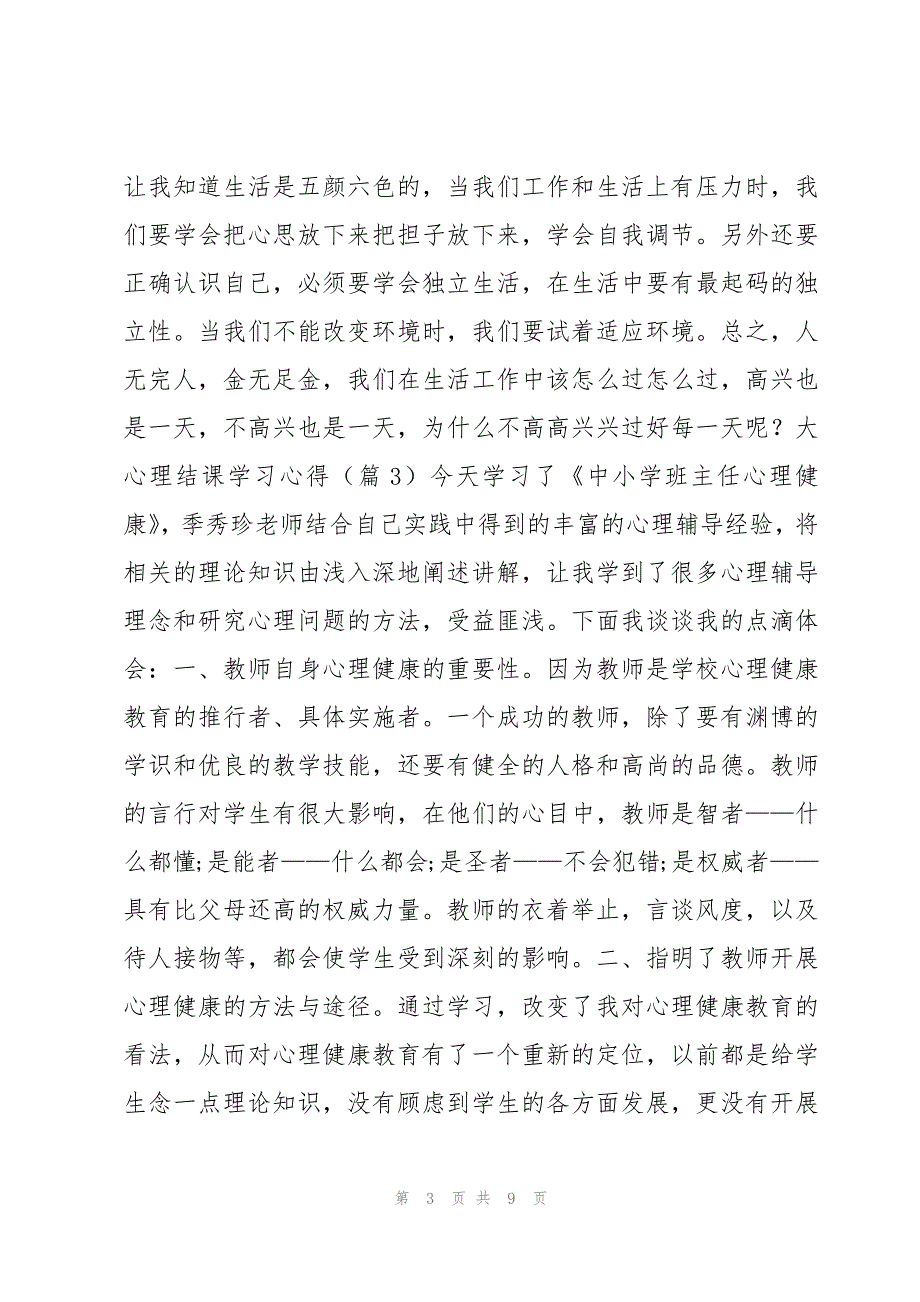 让我知道生活是五颜六色的，当我们工作和生活上有压力时，我
们要学会把心思放下来把担子放下来，学会自我调节。另外还要
正确认识自己，必须要学会独立生活，在生活中要有最起码的独
立性。当我们不能改变环境时，我们要试着适应环境。总之，人
无完人，金无足金，我们在生活工作中该怎么过怎么过，高兴也
是一天，不高兴也是一天，为什么不高高兴兴过好每一天呢？大
心理结课学习心得（篇3）今天学习了《中小学班主任心理健
康》，季秀珍老师结合自己实践中得到的丰富的心理辅导经验，将
相关的理论知识由浅入深地阐述讲解，让我学到了很多心理辅导
理念和研究心理问题的方法，受益匪浅。下面我谈谈我的点滴体
会：一、教师自身心理健康的重要性。因为教师是学校心理健康
教育的推行者、具体实施者。一个成功的教师，除了要有渊博的
学识和优良的教学技能，还要有健全的人格和高尚的品德。教师
的言行对学生有很大影响，在他们的心目中，教师是智者——什
么都懂;是能者——什么都会;是圣者——不会犯错;是权威者——
具有比父母还高的权威力量。教师的衣着举止，言谈风度，以及
待人接物等，都会使学生受到深刻的影响。二、指明了教师开展
心理健康的方法与途径。通过学习，改变了我对心理健康教育的
看法，从而对心理健康教育有了一个重新的定位，以前都是给学
生念一点理论知识，没有顾虑到学生的各方面发展，更没有开展
第 3 页 共 9 页